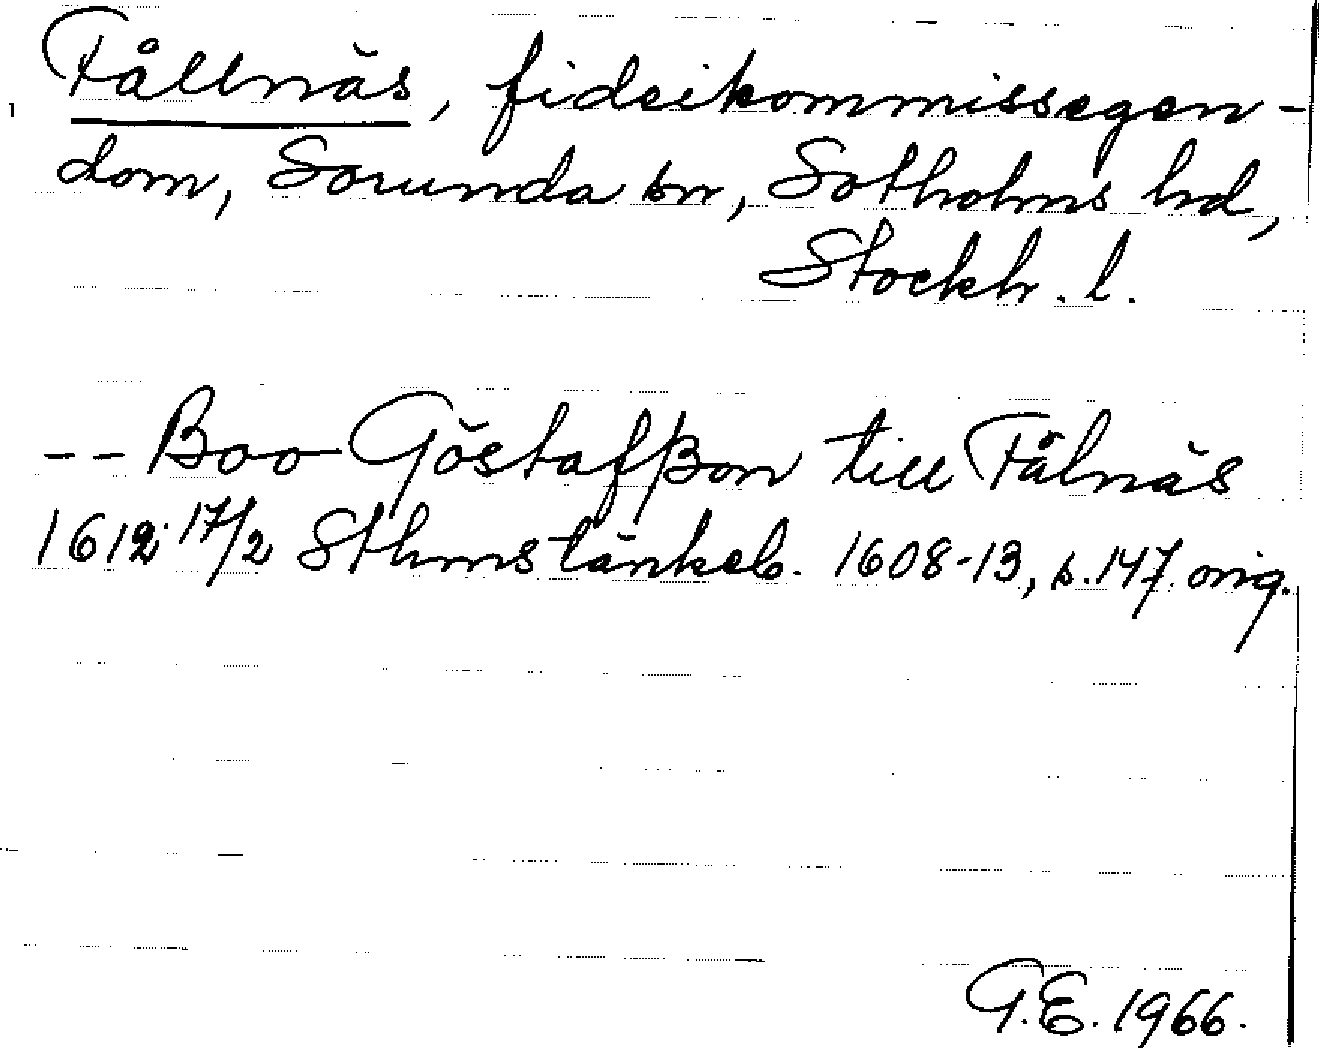 Fållnäs, fideikommissegen-
dom, Sorunda sn, Sotholms hd,
Stockh. l.
-- Boo Göstafßon till Fålnäs
1612 17/2 Sthms tänkeb. 1608-13, s. 147. orig.
G.E. 1966.